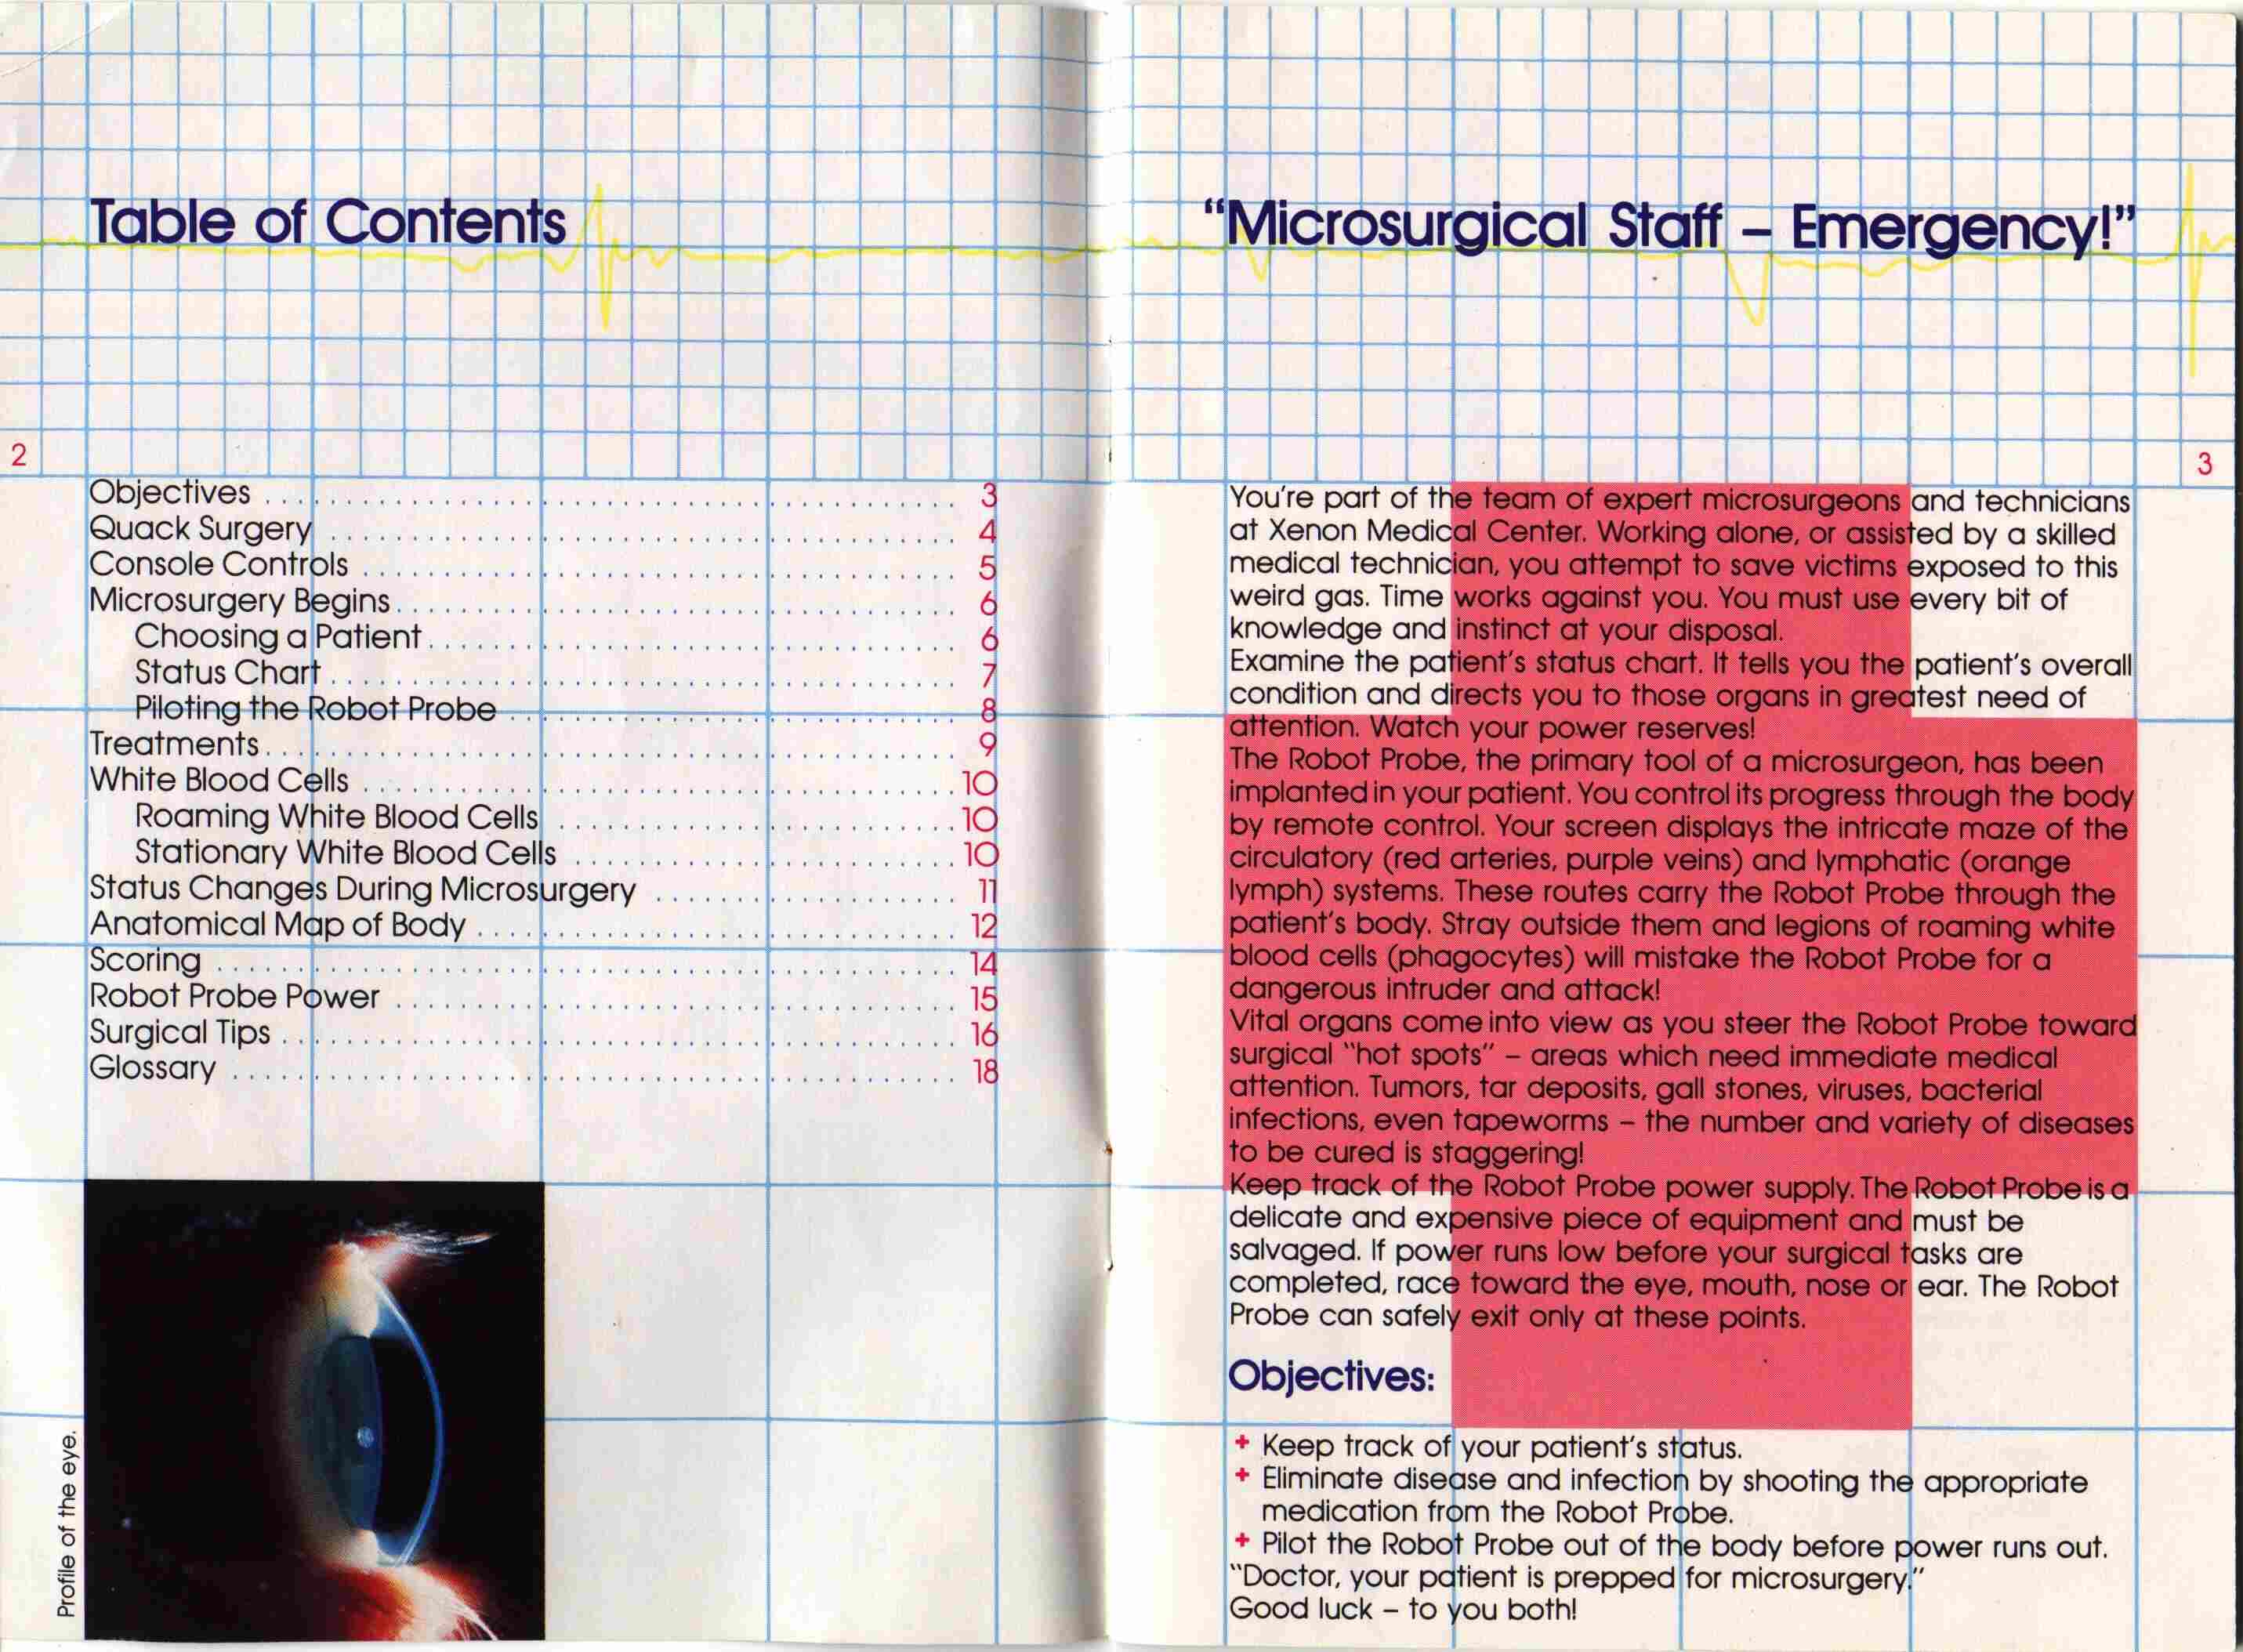 Table of Contents
2
Objectives 3
Quack Surgery 4
Console Controls 5
Microsurgery Begins 6
Choosing a Patient 6
Status Chart 7
Piloting the Robot Probe 8
Treatments 9
White Blood Cells 10
Roaming White Blood Cells 10
Stationary White Blood Cells 10
Status Changes During Microsurgery 11
Anatomical Map of Body 12
Scoring 14
Robot Probe Power 15
Surgical Tips 16
Glossary 18
Profile of the eye.
“Microsurgical Staff – Emergency!”
3
You're part of the team of expert microsurgeons and technicians
at Xenon Medical Center. Working alone, or assisted by a skilled
medical technician, you attempt to save victims exposed to this
weird gas. Time works against you. You must use every bit of
knowledge and instinct at your disposal.
Examine the patient's status chart. It tells you the patient's overall
condition and directs you to those organs in greatest need of
attention. Watch your power reserves!
The Robot Probe, the primary tool of a microsurgeon, has been
implanted in your patient. You control its progress through the body
by remote control. Your screen displays the intricate maze of the
circulatory (red arteries, purple veins) and lymphatic (orange
lymph) systems. These routes carry the Robot Probe through the
patient's body. Stray outside them and legions of roaming white
blood cells (phagocytes) will mistake the Robot Probe for a
dangerous intruder and attack!
Vital organs come into view as you steer the Robot Probe toward
surgical “hot spots” – areas which need immediate medical
attention. Tumors, tar deposits, gall stones, viruses, bacterial
infections, even tapeworms – the number and variety of diseases
to be cured is staggering!
Keep track of the Robot Probe power supply. The Robot Probe is a
delicate and expensive piece of equipment and must be
salvaged. If power runs low before your surgical tasks are
completed, race toward the eye, mouth, nose or ear. The Robot
Probe can safely exit only at these points.
Objectives:
+ Keep track of your patient's status.
+ Eliminate disease and infection by shooting the appropriate
medication from the Robot Probe.
+ Pilot the Robot Probe out of the body before power runs out.
“Doctor, your patient is prepped for microsurgery.”
Good luck – to you both!